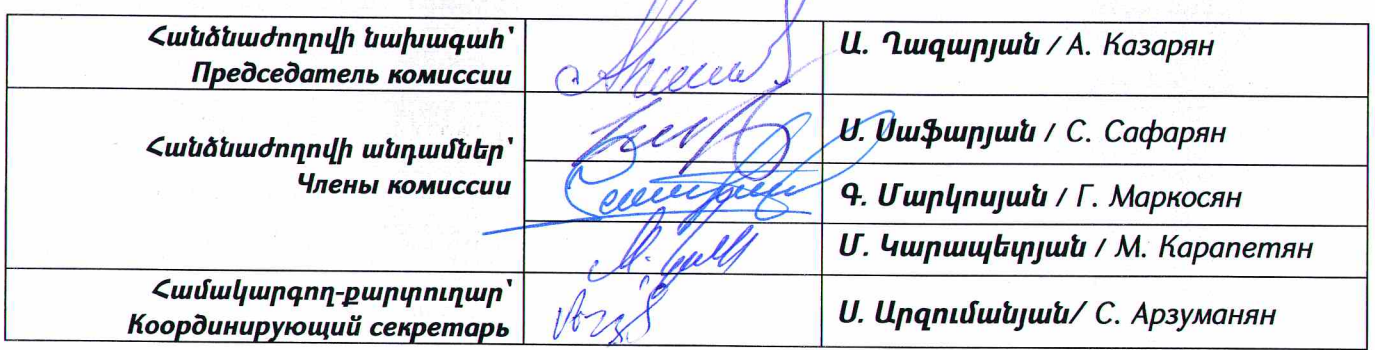 Հանձնաժողովի նախագահ՝
Председатель комиссии
Ա. Ղազարյան / А. Казарян
Հանձնաժողովի անդամներ՝
Члены комиссии
Ս. Սաֆարյան / С. Сафарян
Գ. Մարկոսյան / Г. Маркосян
Մ. Կարապետյան / М. Карапетян
Համակարգող-քարտուղար՝
Координирующий секретарь
Ս. Արզումանյան/ С. Арзуманян